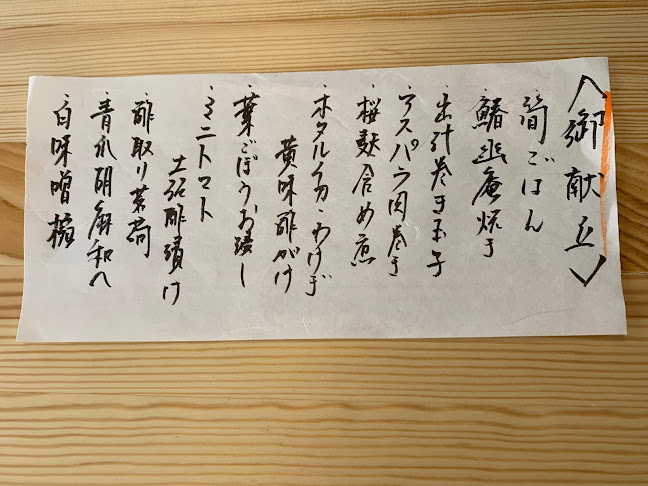 〈御献立〉
・筍ごはん
・鰆幽庵焼き
・出汁巻き玉子
・アスパラ肉巻き
・桜麩含め煮
・ホタルイカ・わけぎ
黄味酢がけ
・葉ごぼうお浸し
・ミニトマト
土佐酢漬け
・酢取り茗荷
・青瓜胡麻和へ
・白味噌椀